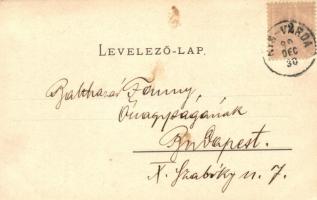 LEVELEZŐ-LAP.
KIS-VÁRDA
99
DEC
30
Balthazár Fanny,
Őnagyságának
Budapest.
X. Szabóky u. 7.